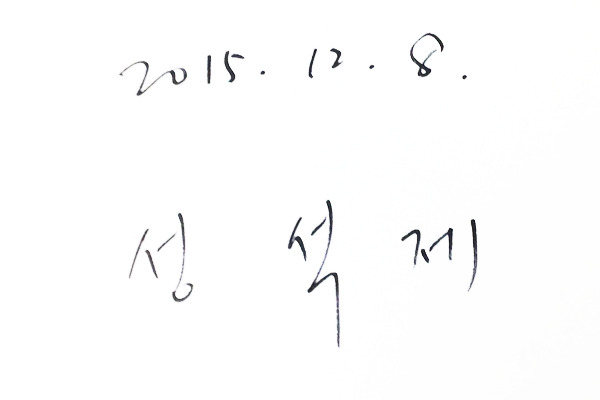 2015. 12. 8.
성 석 제